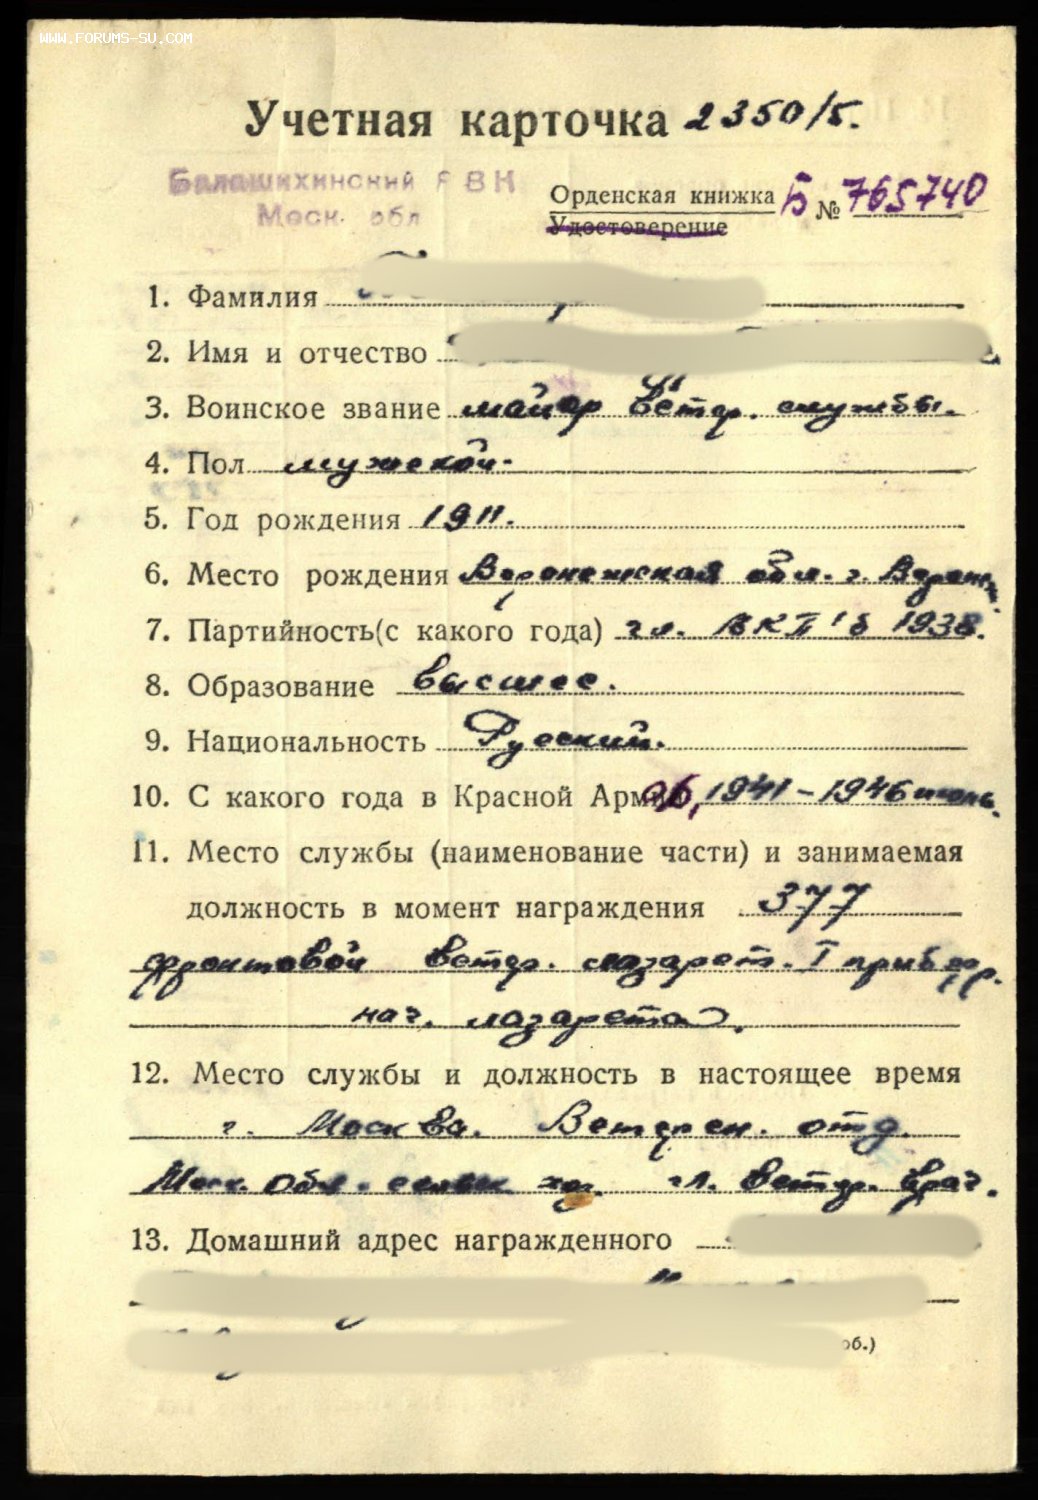 WWW.FORUMS-SU.COM
Учетная карточка 2350/5.
Балашихинский РВК
Моск. обл
Орденская книжка Б № 765740
Удостоверение
1. Фамилия
2. Имя и отчество
3. Воинское звание майор ветер. службы.
4. Пол мужской.
5. Год рождения 1911.
6. Место рождения Воронежская обл. г. Воронеж
7. Партийность (с какого года) чл. ВКП/б 1938.
8. Образование высшее.
9. Национальность Русский.
10. С какого года в Красной Армии 1941-1946 июль.
11. Место службы (наименование части) и занимаемая
должность в момент награждения 377
фронтовой ветер. лазарет. I приб фр.
нач. лазарета.
12. Место службы и должность в настоящее время
г. Москва. Ветерен. отд.
Моск. обл. сельск хоз. гл. ветер. врач.
13. Домашний адрес награжденного
об.)